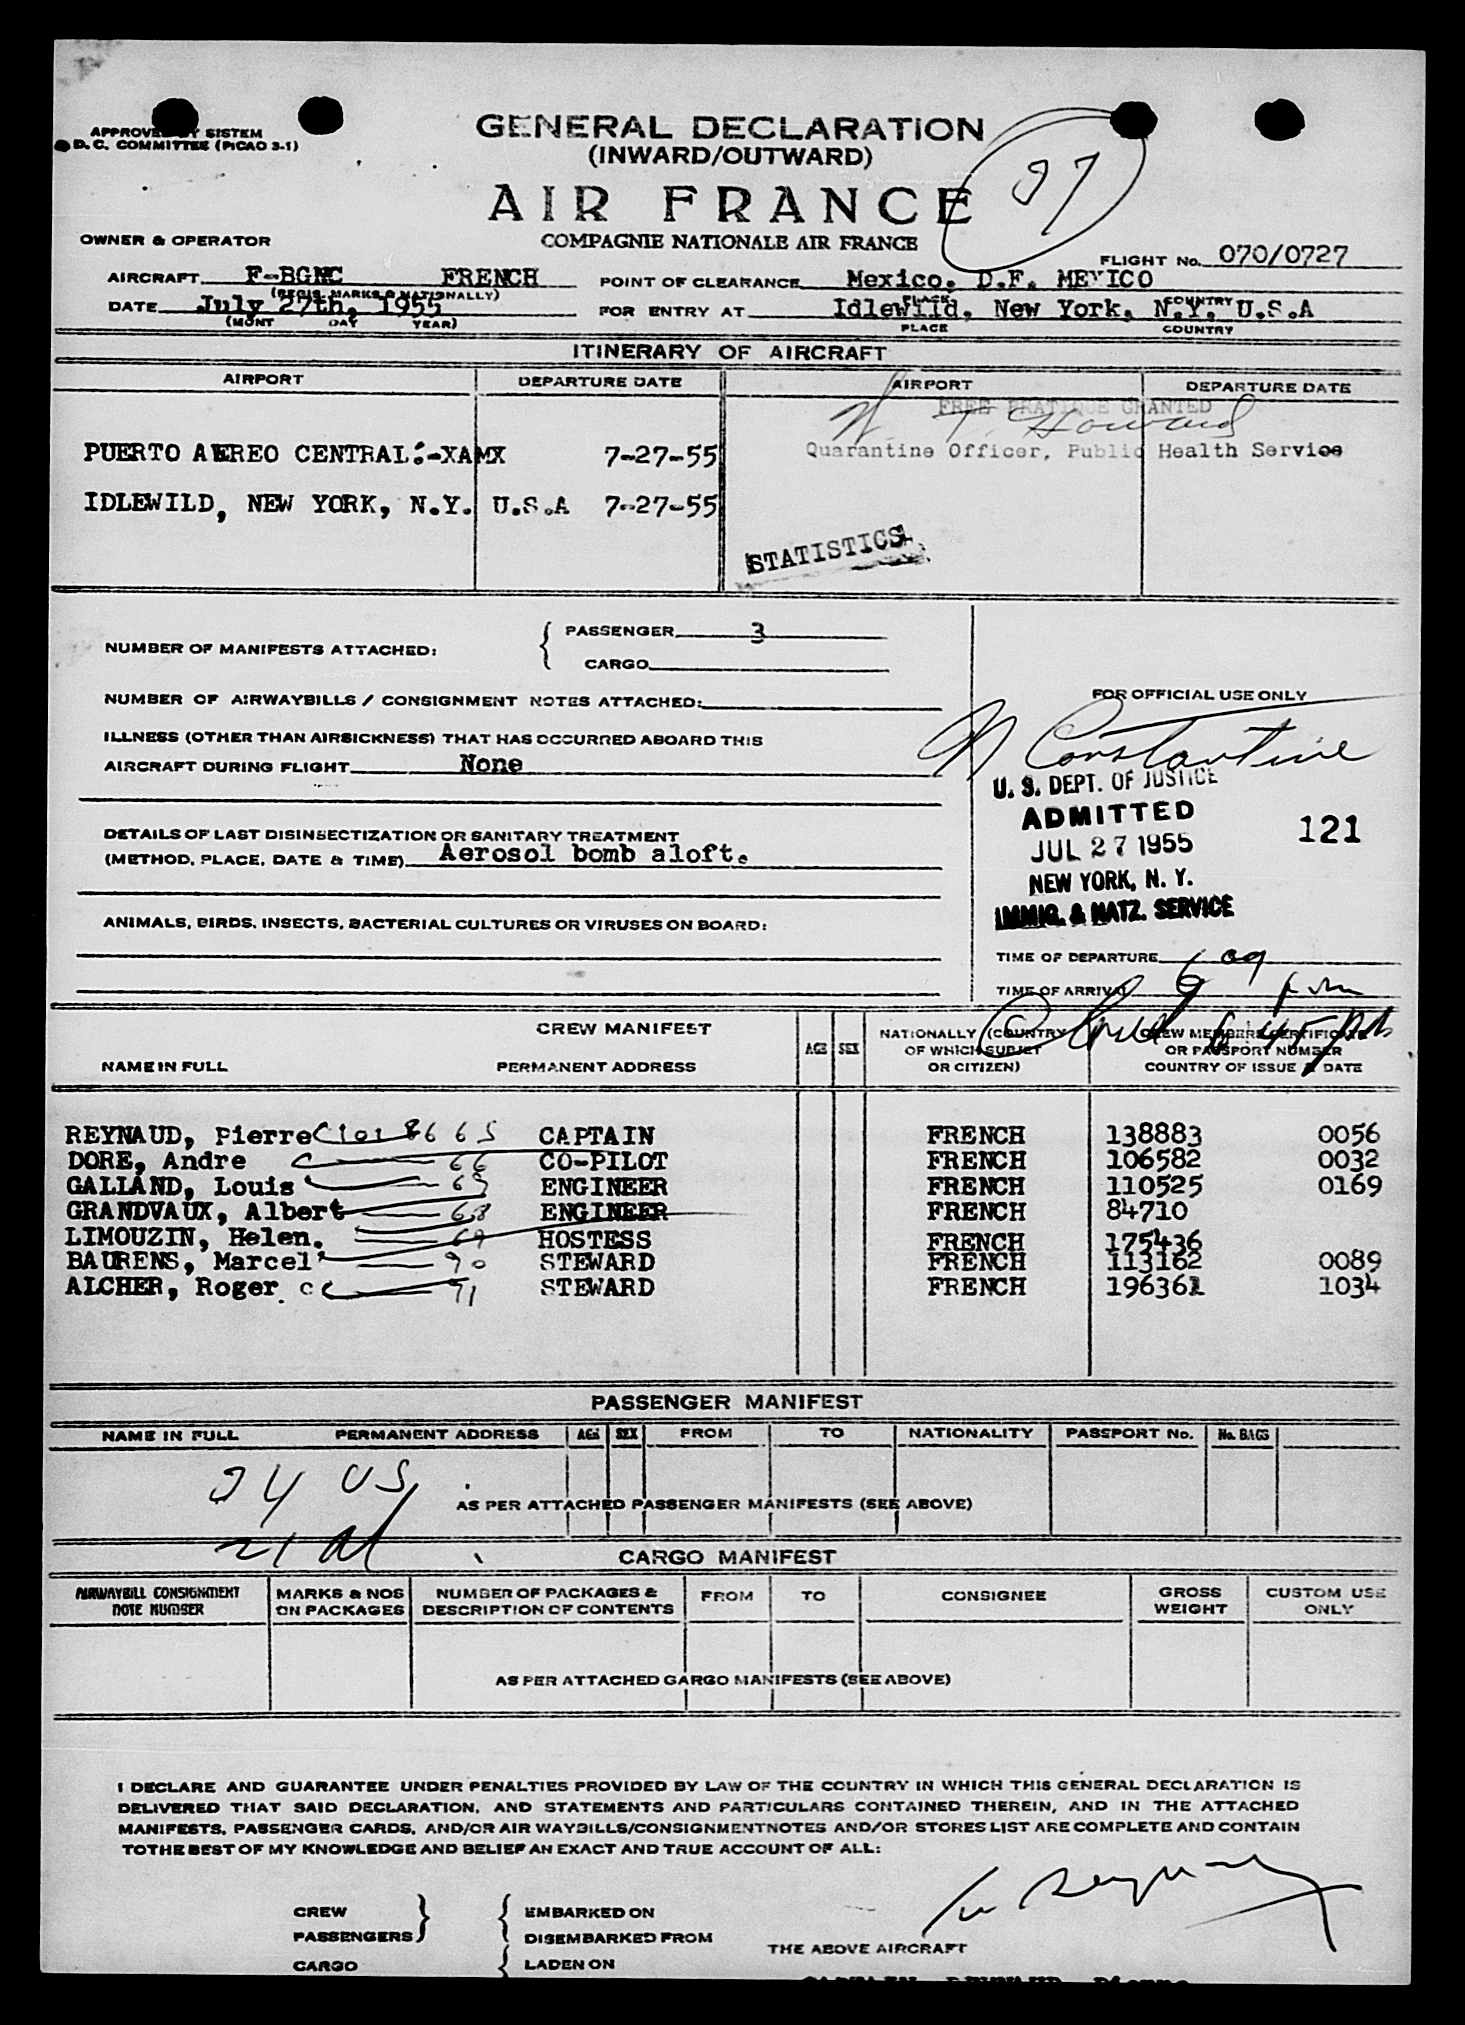 APPROVED BY SISTEM
D. C. COMMITTEE (PICAO 3-1)
GENERAL DECLARATION
(INWARD/OUTWARD)
AIR FRANCE
COMPAGNIE NATIONALE AIR FRANCE
OWNER & OPERATOR
FLIGHT No. 070/0727
AIRCRAFT F-BGNC FRENCH POINT OF CLEARANCE Mexico, D.F. MEXICO
(REGIS. MARKS & NATIONALLY) PLACE COUNTRY
DATE July 27th, 1955 FOR ENTRY AT Idlewild, New York, N.Y. U.S.A
(MONT DAY YEAR) PLACE COUNTRY
ITINERARY OF AIRCRAFT
AIRPORT DEPARTURE DATE AIRPORT DEPARTURE DATE
FREE PRATIQUE GRANTED
PUERTO AEREO CENTRAL:-XAMX 7-27-55
Quarantine Officer, Public Health Service
IDLEWILD, NEW YORK, N.Y. U.S.A 7-27-55
STATISTICS
NUMBER OF MANIFESTS ATTACHED: PASSENGER 3
CARGO
NUMBER OF AIRWAYBILLS / CONSIGNMENT NOTES ATTACHED:
FOR OFFICIAL USE ONLY
ILLNESS (OTHER THAN AIRSICKNESS) THAT HAS OCCURRED ABOARD THIS
AIRCRAFT DURING FLIGHT None
N Constantine
U. S. DEPT. OF JUSTICE
ADMITTED
JUL 27 1955
121
NEW YORK, N. Y.
IMMIG. & NATZ. SERVICE
DETAILS OF LAST DISINSECTIZATION OR SANITARY TREATMENT
(METHOD, PLACE, DATE & TIME) Aerosol bomb aloft.
ANIMALS, BIRDS, INSECTS, BACTERIAL CULTURES OR VIRUSES ON BOARD:
TIME OF DEPARTURE
TIME OF ARRIVAL
CREW MANIFEST
NAME IN FULL PERMANENT ADDRESS AGE SEX NATIONALLY (COUNTRY OF WHICH SUBJET OR CITIZEN) CREW MEMBERS CERTIFICATE OR PASSPORT NUMBER COUNTRY OF ISSUE & DATE
REYNAUD, Pierre CAPTAIN FRENCH 138883 0056
DORE, Andre 66 CO-PILOT FRENCH 106582 0032
GALLAND, Louis ENGINEER FRENCH 110525 0169
GRANDVAUX, Albert 68 ENGINEER FRENCH 84710
LIMOUZIN, Helen. 69 HOSTESS FRENCH 175436
BAURENS, Marcel 90 STEWARD FRENCH 113162 0089
ALCHER, Roger 71 STEWARD FRENCH 196361 1034
PASSENGER MANIFEST
NAME IN FULL PERMANENT ADDRESS AGE SEX FROM TO NATIONALITY PASSPORT No. No. BAGS
24 US
AS PER ATTACHED PASSENGER MANIFESTS (SEE ABOVE)
21 Al
CARGO MANIFEST
AIRWAYBILL CONSIGNMENT NOTE NUMBER MARKS & NOS ON PACKAGES NUMBER OF PACKAGES & DESCRIPTION OF CONTENTS FROM TO CONSIGNEE GROSS WEIGHT CUSTOM USE ONLY
AS PER ATTACHED CARGO MANIFESTS (SEE ABOVE)
I DECLARE AND GUARANTEE UNDER PENALTIES PROVIDED BY LAW OF THE COUNTRY IN WHICH THIS GENERAL DECLARATION IS
DELIVERED THAT SAID DECLARATION, AND STATEMENTS AND PARTICULARS CONTAINED THEREIN, AND IN THE ATTACHED
MANIFESTS, PASSENGER CARDS, AND/OR AIR WAYBILLS/CONSIGNMENTNOTES AND/OR STORES LIST ARE COMPLETE AND CONTAIN
TO THE BEST OF MY KNOWLEDGE AND BELIEF AN EXACT AND TRUE ACCOUNT OF ALL:
CREW EMBARKED ON
PASSENGERS DISEMBARKED FROM
THE ABOVE AIRCRAFT
CARGO LADEN ON